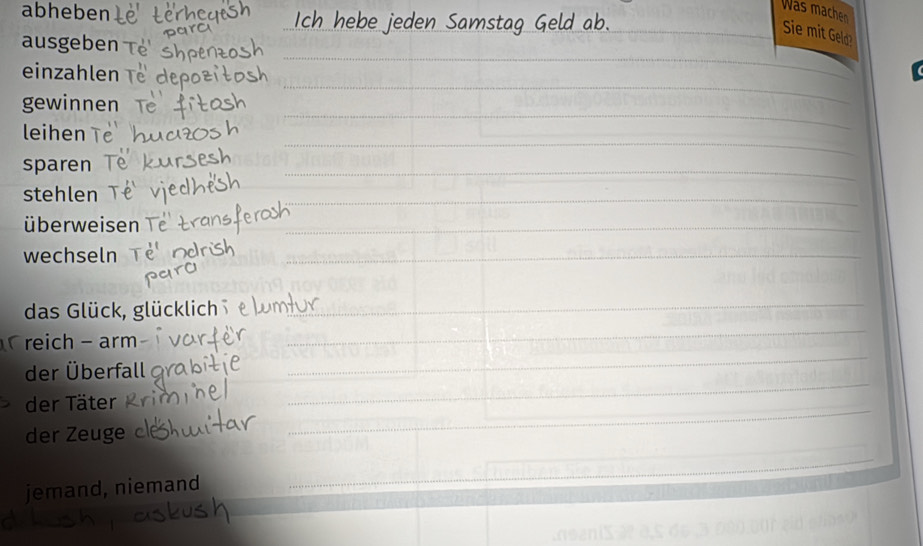 abheben të tërheqësh Ich hebe jeden Samstag Geld ab. Was machen
para Sie mit Geld?
ausgeben Të shpenzosh
einzahlen Të depozitosh
gewinnen Të fitosh
leihen Të huazosh
sparen Të kursesh
stehlen Të vjedhësh
überweisen Të transferosh
wechseln Të ndrish
para
das Glück, glücklich i elumtur
reich – arm - i varfër
der Überfall grabitje
der Täter Kriminel
der Zeuge dëshmitar
jemand, niemand
dikush, askush